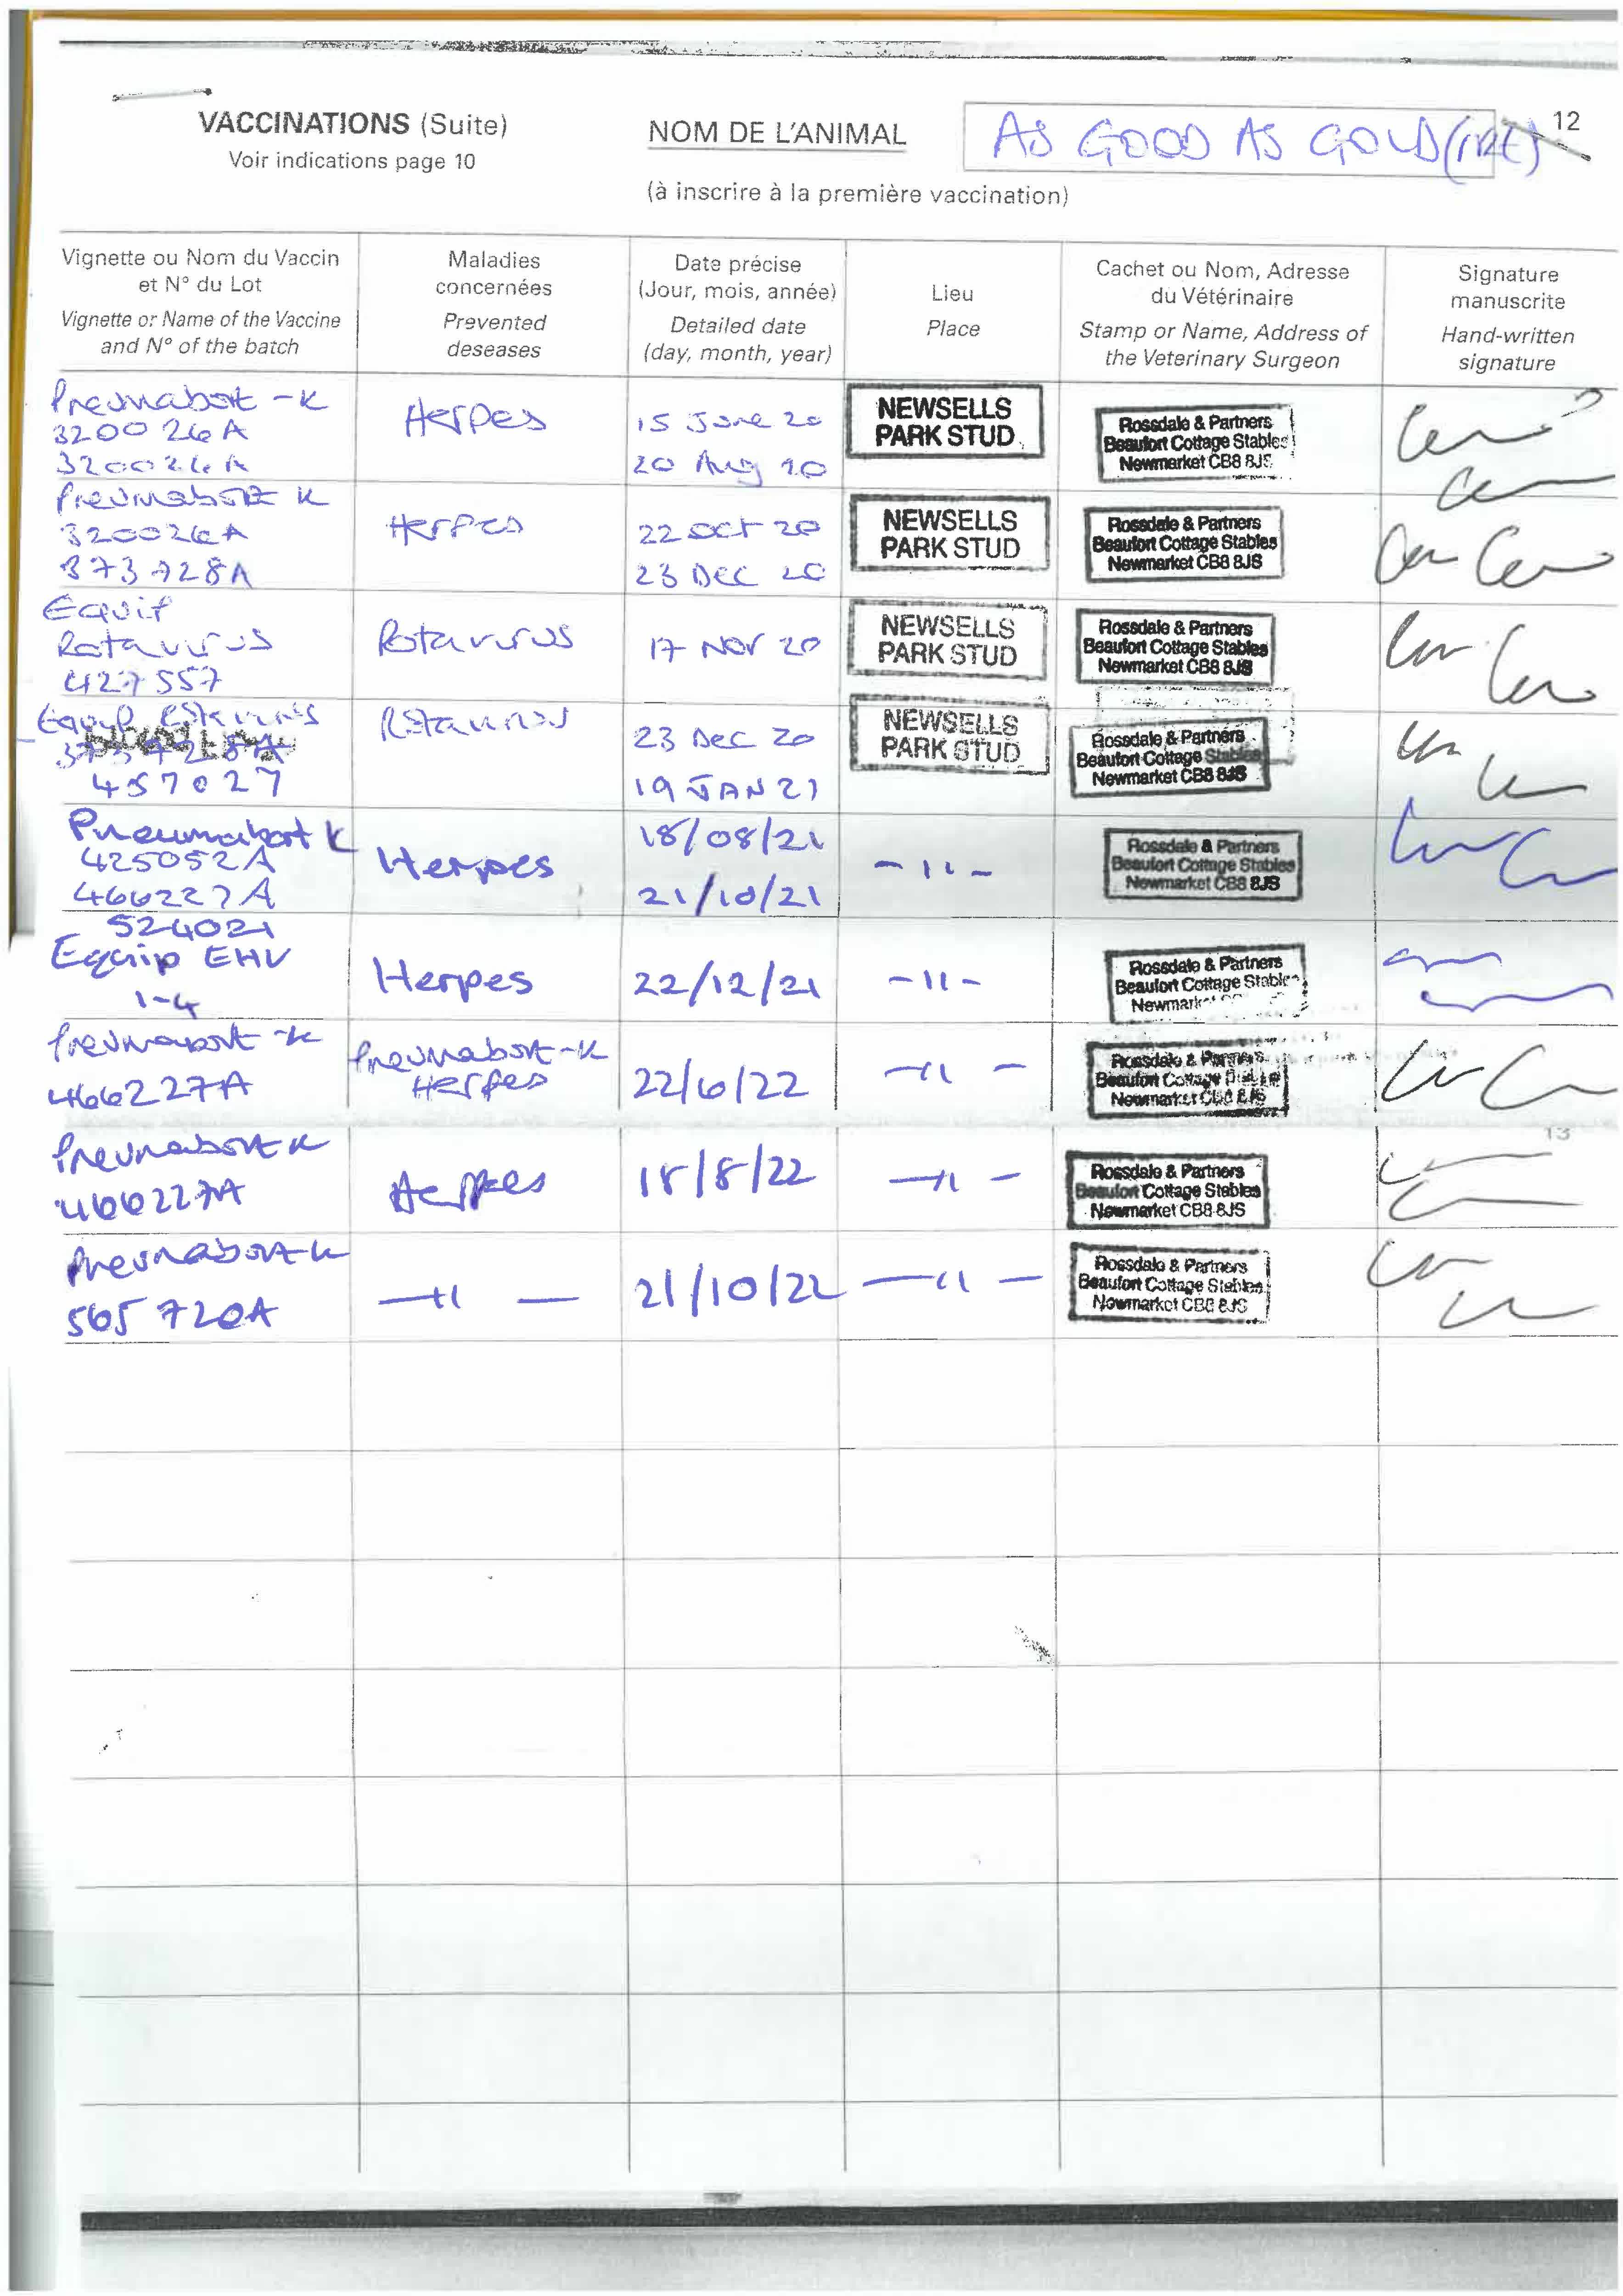 12
VACCINATIONS (Suite)
Voir indications page 10
NOM DE L'ANIMAL
AS GOOD AS GOLD (IRE)
(à inscrire à la première vaccination)
Vignette ou Nom du Vaccin
et N° du Lot
Vignette or Name of the Vaccine
and N° of the batch
Maladies
concernées
Prevented
deseases
Date précise
(Jour, mois, année)
Detailed date
(day, month, year)
Lieu
Place
Cachet ou Nom, Adresse
du Vétérinaire
Stamp or Name, Address of
the Veterinary Surgeon
Signature
manuscrite
Hand-written
signature
Pneumabort -K
320026A
320026A
Herpes
15 June 20
20 Aug 20
NEWSELLS
PARK STUD
Rossdale & Partners
Beaufort Cottage Stables
Newmarket CB8 8JS
Pneumabort K
320026A
373728A
Herpes
22 Oct 20
23 Dec 20
NEWSELLS
PARK STUD
Rossdale & Partners
Beaufort Cottage Stables
Newmarket CB8 8JS
Equip
Rotavirus
427557
Rotavirus
17 Nov 20
NEWSELLS
PARK STUD
Rossdale & Partners
Beaufort Cottage Stables
Newmarket CB8 8JS
Equip Rotavirus
457027
Rotavirus
23 Dec 20
19 JAN 21
NEWSELLS
PARK STUD
Rossdale & Partners
Beaufort Cottage Stables
Newmarket CB8 8JS
Pneumabort K
425052A
466227A
Herpes
18/08/21
21/10/21
-11-
Rossdale & Partners
Beaufort Cottage Stables
Newmarket CB8 8JS
524021
Equip EHV
1-4
Herpes
22/12/21
-11-
Rossdale & Partners
Beaufort Cottage Stables
Newmarket
Pneumabort -K
466227A
Pneumabort-K
Herpes
22/6/22
-11-
Rossdale & Partners
Beaufort Cottage Stables
Newmarket CB8 8JS
13
Pneumabort K
466227A
Herpes
18/8/22
-11-
Rossdale & Partners
Beaufort Cottage Stables
Newmarket CB8 8JS
Pneumabort-K
565720A
-11-
21/10/22
-11-
Rossdale & Partners
Beaufort Cottage Stables
Newmarket CB8 8JS